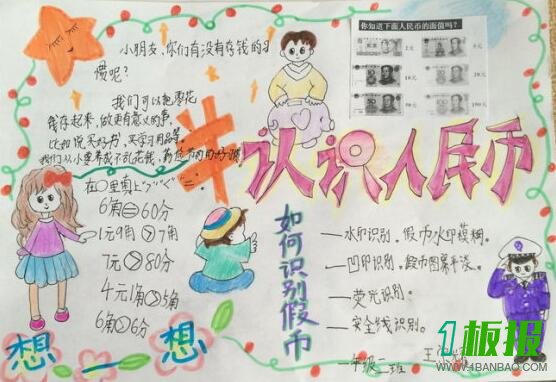 小朋友,你们有没有存钱的习
惯呢?
我们可以把零花
钱存起来,做更有意义的事,
比如说买好书,买学习用品等。
在○里填上">""<""="
6角=60分
1元9角>7角
7元>80分
4元1角>5角
6角>6分
想一想
你知道下面人民币的面值吗?
认识人民币
如何识别假币
—水印识别。假币水印模糊。
—凹印识别,假币图案平淡。
—荧光识别。
—安全线识别。
一年级二班
1板报
WWW.1BANBAO.COM